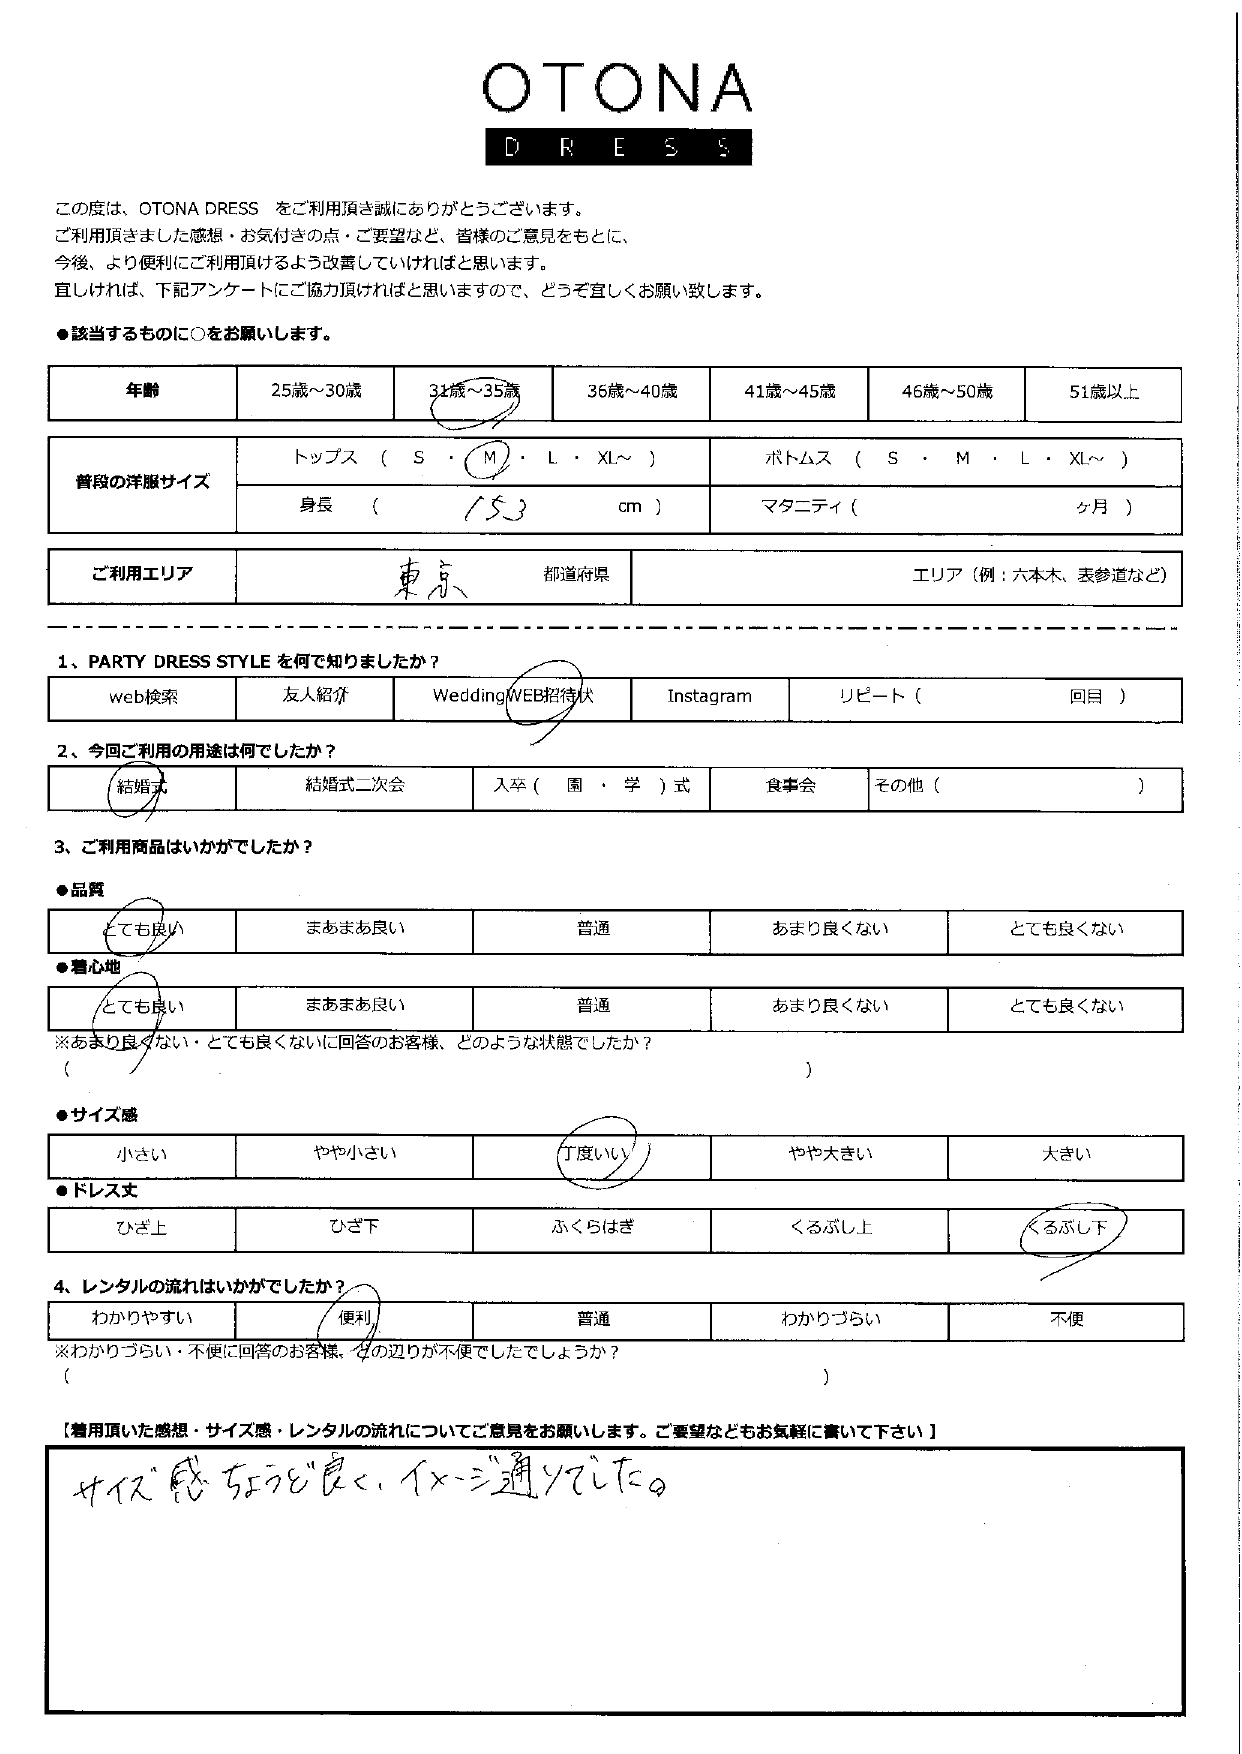 OTONA
DRESS
この度は、OTONA DRESS をご利用頂き誠にありがとうございます。
ご利用頂きました感想・お気付きの点・ご要望など、皆様のご意見をもとに、
今後、より便利にご利用頂けるよう改善していければと思います。
宜しければ、下記アンケートにご協力頂ければと思いますので、どうぞ宜しくお願い致します。
●該当するものに○をお願いします。
年齢 25歳～30歳 31歳～35歳 36歳～40歳 41歳～45歳 46歳～50歳 51歳以上
普段の洋服サイズ トップス ( S ・ M ・ L ・ XL～ ) ボトムス ( S ・ M ・ L ・ XL～ )
身長 ( 153 cm ) マタニティ ( ヶ月 )
ご利用エリア 東京 都道府県 エリア（例：六本木、表参道など）
1、PARTY DRESS STYLE を何で知りましたか？
web検索 友人紹介 WeddingWEB招待状 Instagram リピート ( 回目 )
2、今回ご利用の用途は何でしたか？
結婚式 結婚式二次会 入卒 ( 園 ・ 学 ) 式 食事会 その他 ( )
3、ご利用商品はいかがでしたか？
●品質
とても良い まあまあ良い 普通 あまり良くない とても良くない
●着心地
とても良い まあまあ良い 普通 あまり良くない とても良くない
※あまり良くない・とても良くないに回答のお客様、どのような状態でしたか？
( )
●サイズ感
小さい やや小さい 丁度いい やや大きい 大きい
●ドレス丈
ひざ上 ひざ下 ふくらはぎ くるぶし上 くるぶし下
4、レンタルの流れはいかがでしたか？
わかりやすい 便利 普通 わかりづらい 不便
※わかりづらい・不便に回答のお客様、どの辺りが不便でしたでしょうか？
( )
【着用頂いた感想・サイズ感・レンタルの流れについてご意見をお願いします。ご要望などもお気軽に書いて下さい】
サイズ感ちょうど良く、イメージ通りでした。